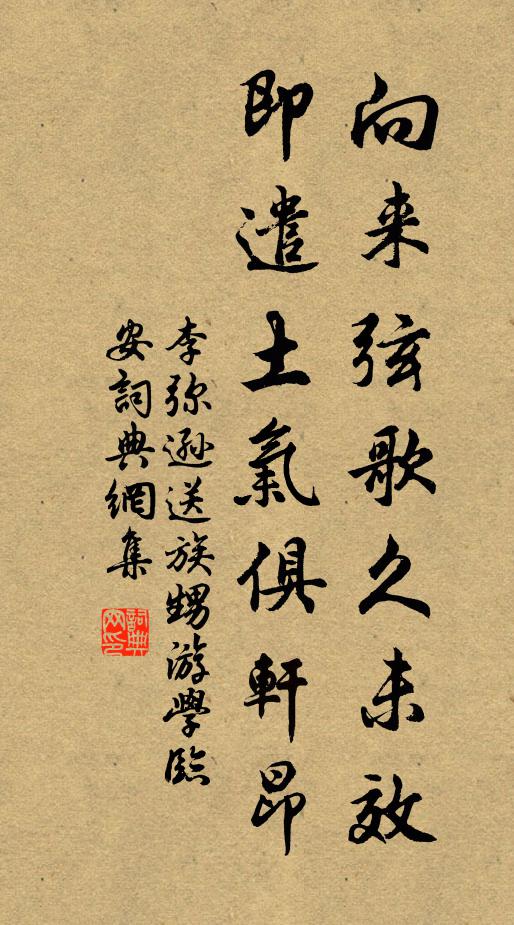 向来弦歌久未效
即遣土氣俱軒昂
李弥遜送族甥游學臨
安詞典網集
詞典
网印